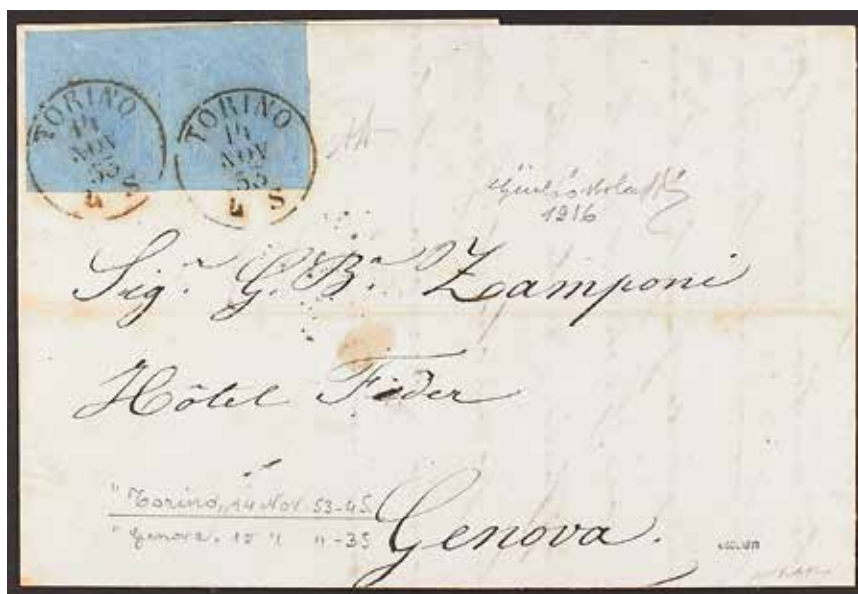 TORINO
14
NOV
53
4 S
TORINO
14
NOV
53
4 S
1916
Sigr. G. Ba. Zamponi
Hôtel Feder
" Torino, 14 Nov 53-4S
" Genova. 15 " "-3S
Genova.